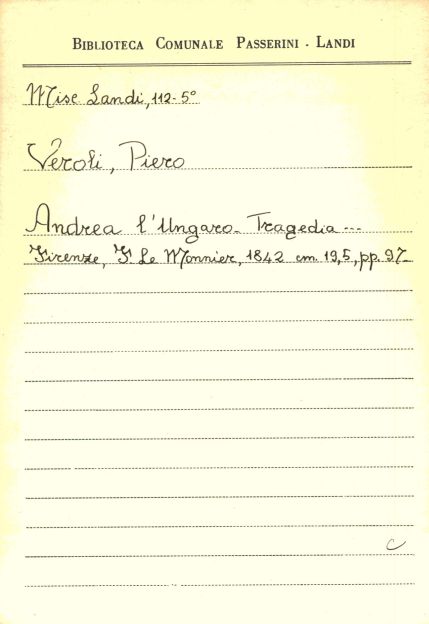 BIBLIOTECA COMUNALE PASSERINI - LANDI
Misc Landi, 112-5º
Veroli, Piero
Andrea l'Ungaro - Tragedia ...
Firenze, F. Le Monnier, 1842 cm. 19,5, pp. 97-
C